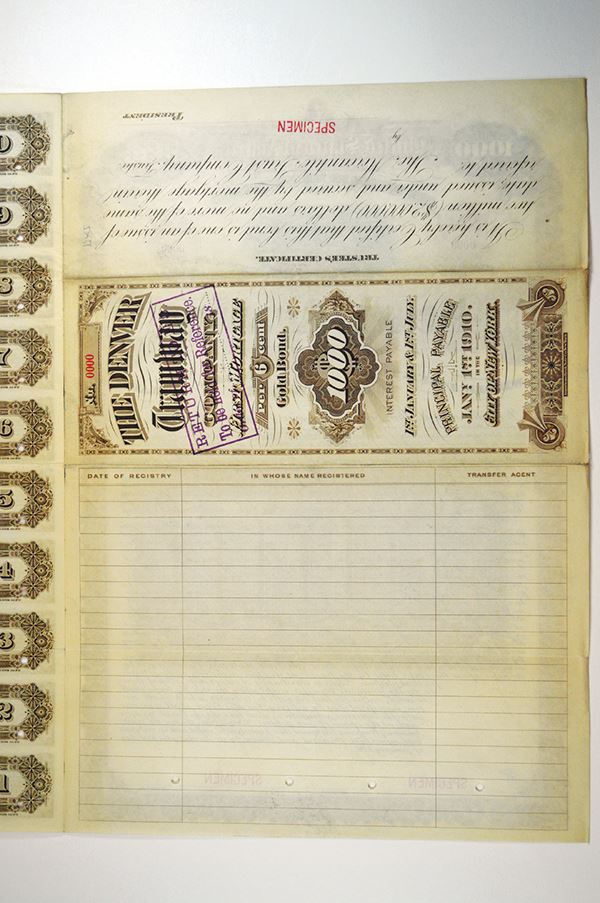 TRUSTEE'S CERTIFICATE.
It is hereby Certified that this bond is one of an issue of
million dollars and no more of the same
date, issued under and secured by the mortgage therein
referred to. The Mercantile Trust Company, Trustee
by
PRESIDENT
SPECIMEN
No. 0000
THE DENVER
Tramway
COMPANY
RETURN
To be Reference.
Per 6 cent
Gold Bond.
$1000
INTEREST PAYABLE
1st JANUARY & 1st JULY.
PRINCIPAL PAYABLE
JANY 1ST 1910,
IN THE
City of New York.
DATE OF REGISTRY
IN WHOSE NAME REGISTERED
TRANSFER AGENT
SPECIMEN
SPECIMEN
10
9
8
7
6
5
4
3
2
1